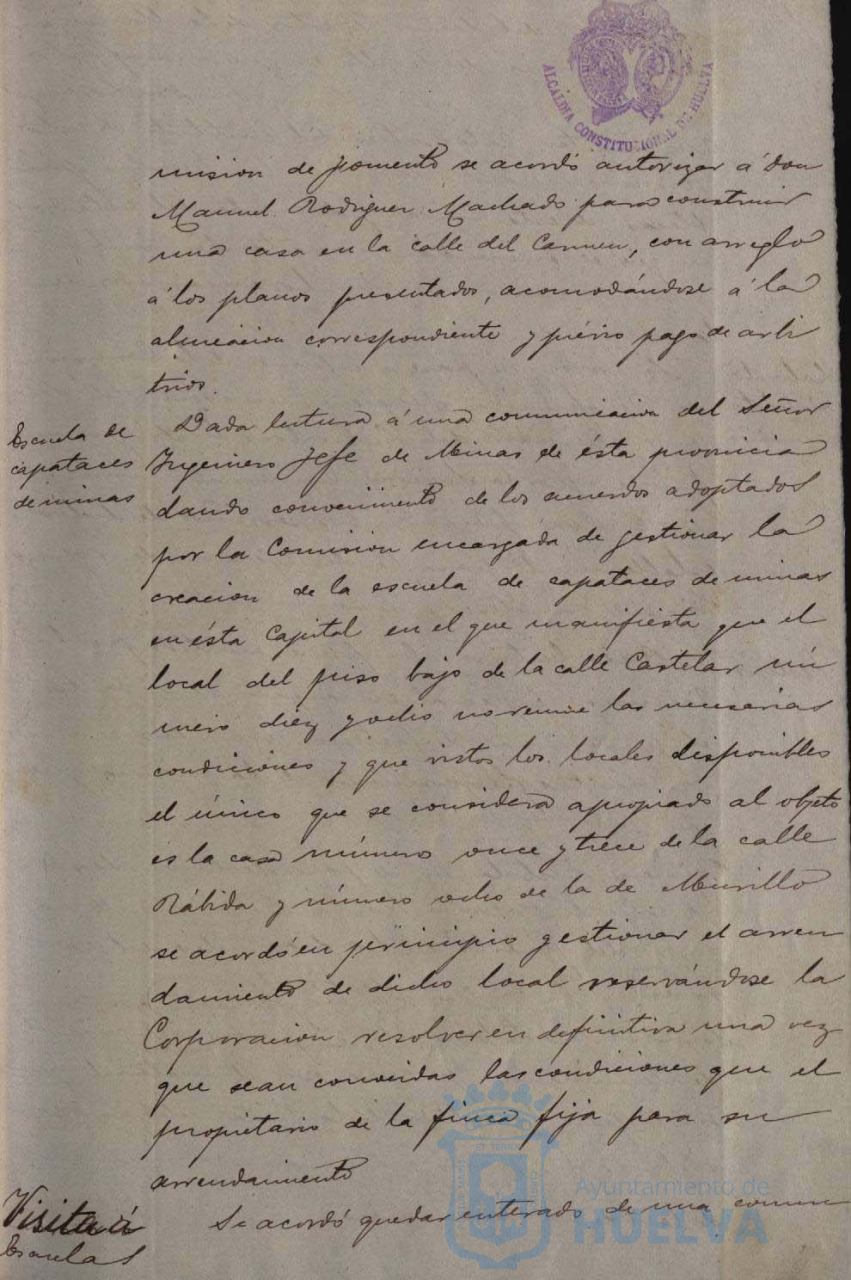 ALCALDIA CONSTITUCIONAL DE HUELVA
mision de fomento se acordó autorizar á don
Manuel Rodriguez Machado para construir
una casa en la calle del Carmen, con arreglo
á los planos presentados, acomodándose á la
alineacion correspondiente y prévio pago de arbi
trios.
Escuela de
capataces
de minas
Dada lectura á una comunicacion del Señor
Ingeniero Jefe de Minas de ésta provincia
dando conocimiento de los acuerdos adoptados
por la Comision encargada de gestionar la
creacion de la escuela de capataces de minas
en ésta Capital en el que manifiesta que el
local del piso bajo de la calle Castelar nú
mero diez y ocho no reune las necesarias
condiciones y que vistos los locales disponibles
el único que se considera apropiado al objeto
es la casa número once y trece de la calle
Rábida y número ocho de la de Murillo
se acordó en principio gestionar el arren
damiento de dicho local reservándose la
Corporacion resolver en definitiva una vez
que sean conocidas las condiciones que el
propietario de la finca fija para su
arrendamiento
Visita á
Escuelas
Se acordó quedar enterado de una comu
Ayuntamiento de
HUELVA